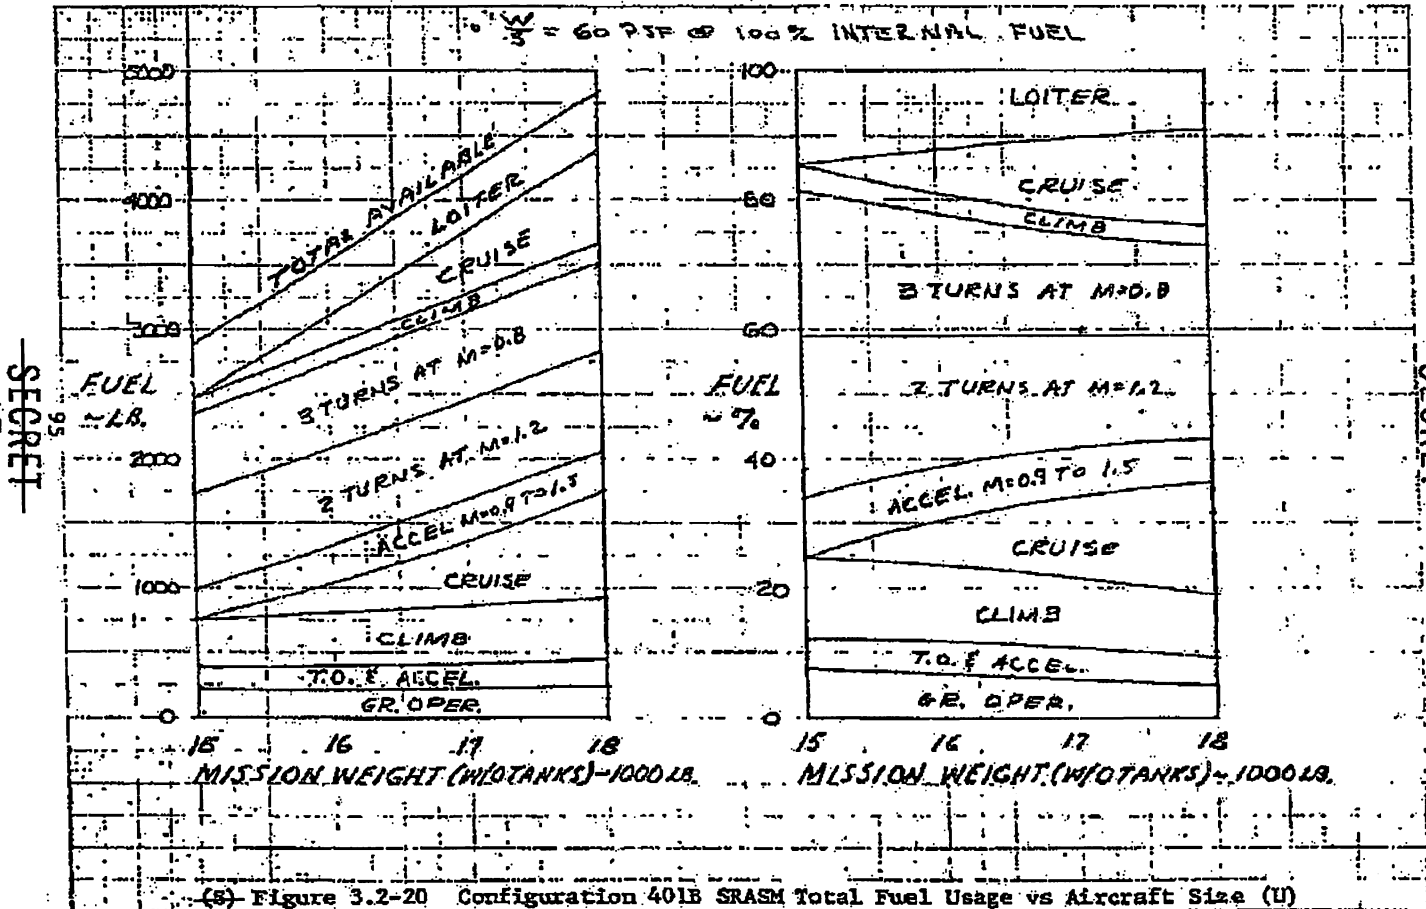 W/S = 60 PSF @ 100% INTERNAL FUEL
5000
4000
3000
2000
1000
0
FUEL
~LB.
TOTAL AVAILABLE
LOITER
CRUISE
CLIMB
3 TURNS AT M=0.8
2 TURNS AT M=1.2
ACCEL M=0.9 TO 1.5
CRUISE
CLIMB
T.O. & ACCEL.
GR. OPER.
15 16 17 18
MISSION WEIGHT (W/O TANKS)~1000 LB.
100
80
60
40
20
0
FUEL
~%
LOITER
CRUISE
CLIMB
3 TURNS AT M=0.8
2 TURNS AT M=1.2
ACCEL. M=0.9 TO 1.5
CRUISE
CLIMB
T.O. & ACCEL.
GR. OPER.
15 16 17 18
MISSION WEIGHT (W/O TANKS)~1000 LB.
SECRET
95
(S) Figure 3.2-20 Configuration 401B SRASM Total Fuel Usage vs Aircraft Size (U)